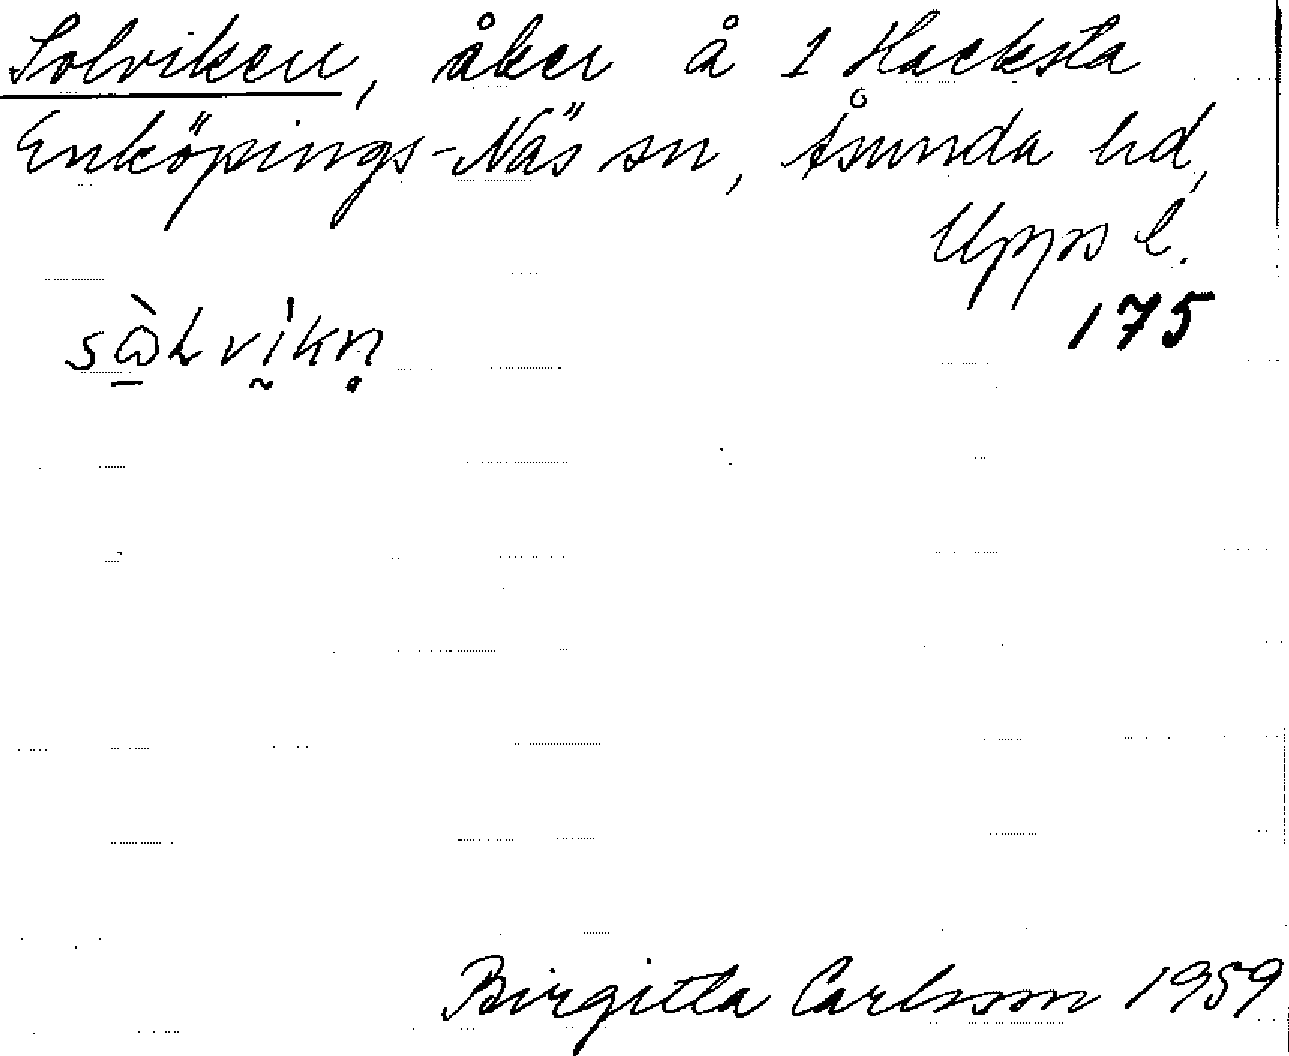 Solviken, åker å 1 Hacksta
Enköpings-Näs sn, Åsunda hd,
Upps l.
175
Birgitta Carlsson 1959